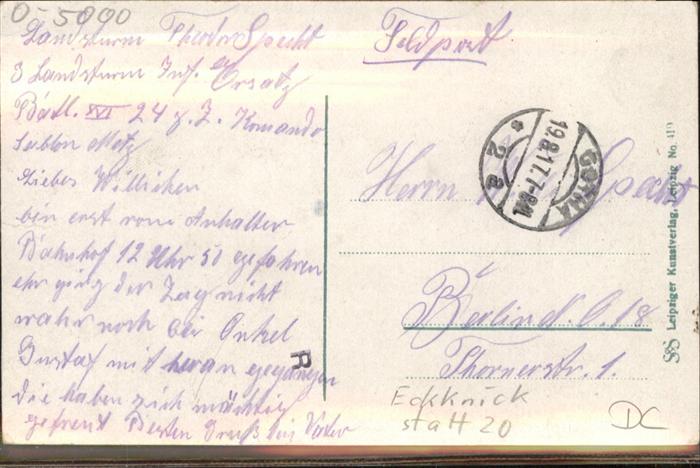 0-5000
Landsturm Theodor Specht
3 Landsturm Inf. Ersatz
Batl. XVI 24 z. Z. Komando
Sablon Metz
Liebes Willichen
bin erst vom Anhalter
Bahnhof 12 Uhr 50 gefahren
ehr ging der Zug nicht
wahr noch bei Onkel
Gustaf mit heran gegangen
die haben sich mächtig
gefreut Besten Gruß dein Vater
Feldpost.
GOTHA
19.8.17.7-8
* 2 a
Herrn Specht
Berlin N.O. 18
Thornerstr. 1.
R
Eckknick
statt 20
DC
S&S Leipziger Kunstverlag, Leipzig No.